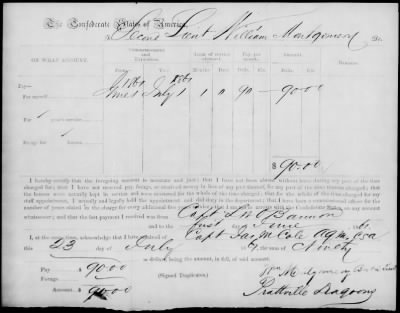 The Confederate States of America,
To Second Lieut William Montgomery Dr.
ON WHAT ACCOUNT. Commencement and Expiration. Term of service charged. Pay per month. Amount. Remarks.
From To Months Days Dolls. Cts. Dolls. Cts.
Pay— 1861 1861
For myself June 1 July 1 1 0 90 — 90 00
For years' service
Forage—
For
$ 90.00
I hereby certify that the foregoing account is accurate and just; that I have not been absent without leave during any part of the time
charged for; that I have not received pay, forage, or received money in lieu of any part thereof, for any part of the time therein charged; that the
horses were actually kept in service and were mustered for the whole of the time charged; that for the whole of the time charged for my
staff appointment, I actually and legally held the appointment and did duty in the department; that I have been a commissioned officer for the
number of years stated in the charge for
whatsoever; and that the last payment I received was from Capt L W O'Bannon
and to the first day of June 1861.
I, at the same time, acknowledge that I have received of Capt Jas McCale A Q M CSA
this 23 day of July the sum of Ninety
dollars, being the amount, in full, of said account.
Pay $ 90.00
Forage,
Amount, $ 90.00
(Signed Duplicates)
Wm Montgomery 2nd Lieut
Prattville Dragoons